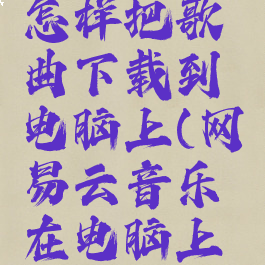 怎样把歌
曲下载到
电脑上(网
易云音乐
在电脑上